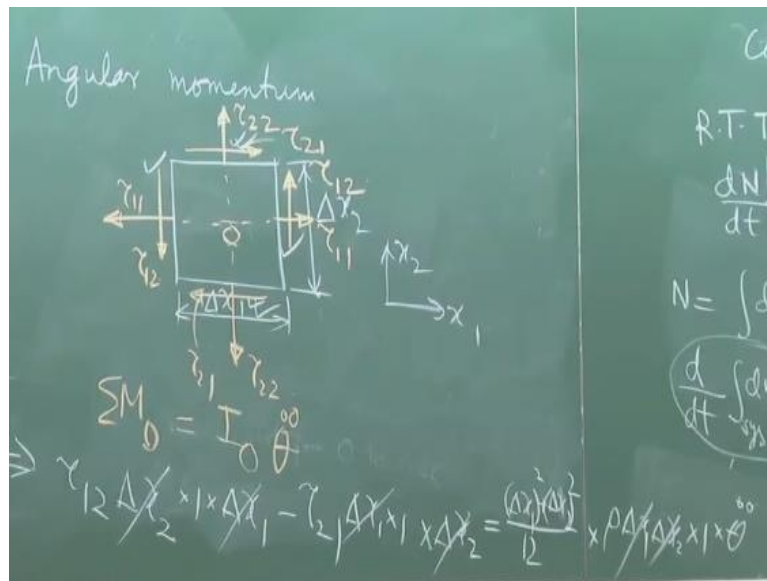 Angular momentum
τ22
τ21
τ12
Δx2
τ11
τ11
O
τ12
Δx1
τ21
τ22
x2
x1
ΣM0 = I0 θ̈
⇒ τ12 Δx2 ×1× Δx1 − τ21 Δx1 ×1 × Δx2 = (Δx1)²+(Δx2)² / 12 × ρ Δx1 Δx2 ×1× θ̈
R.T.T
dN
dt
N = ∫
d/dt ∫sys